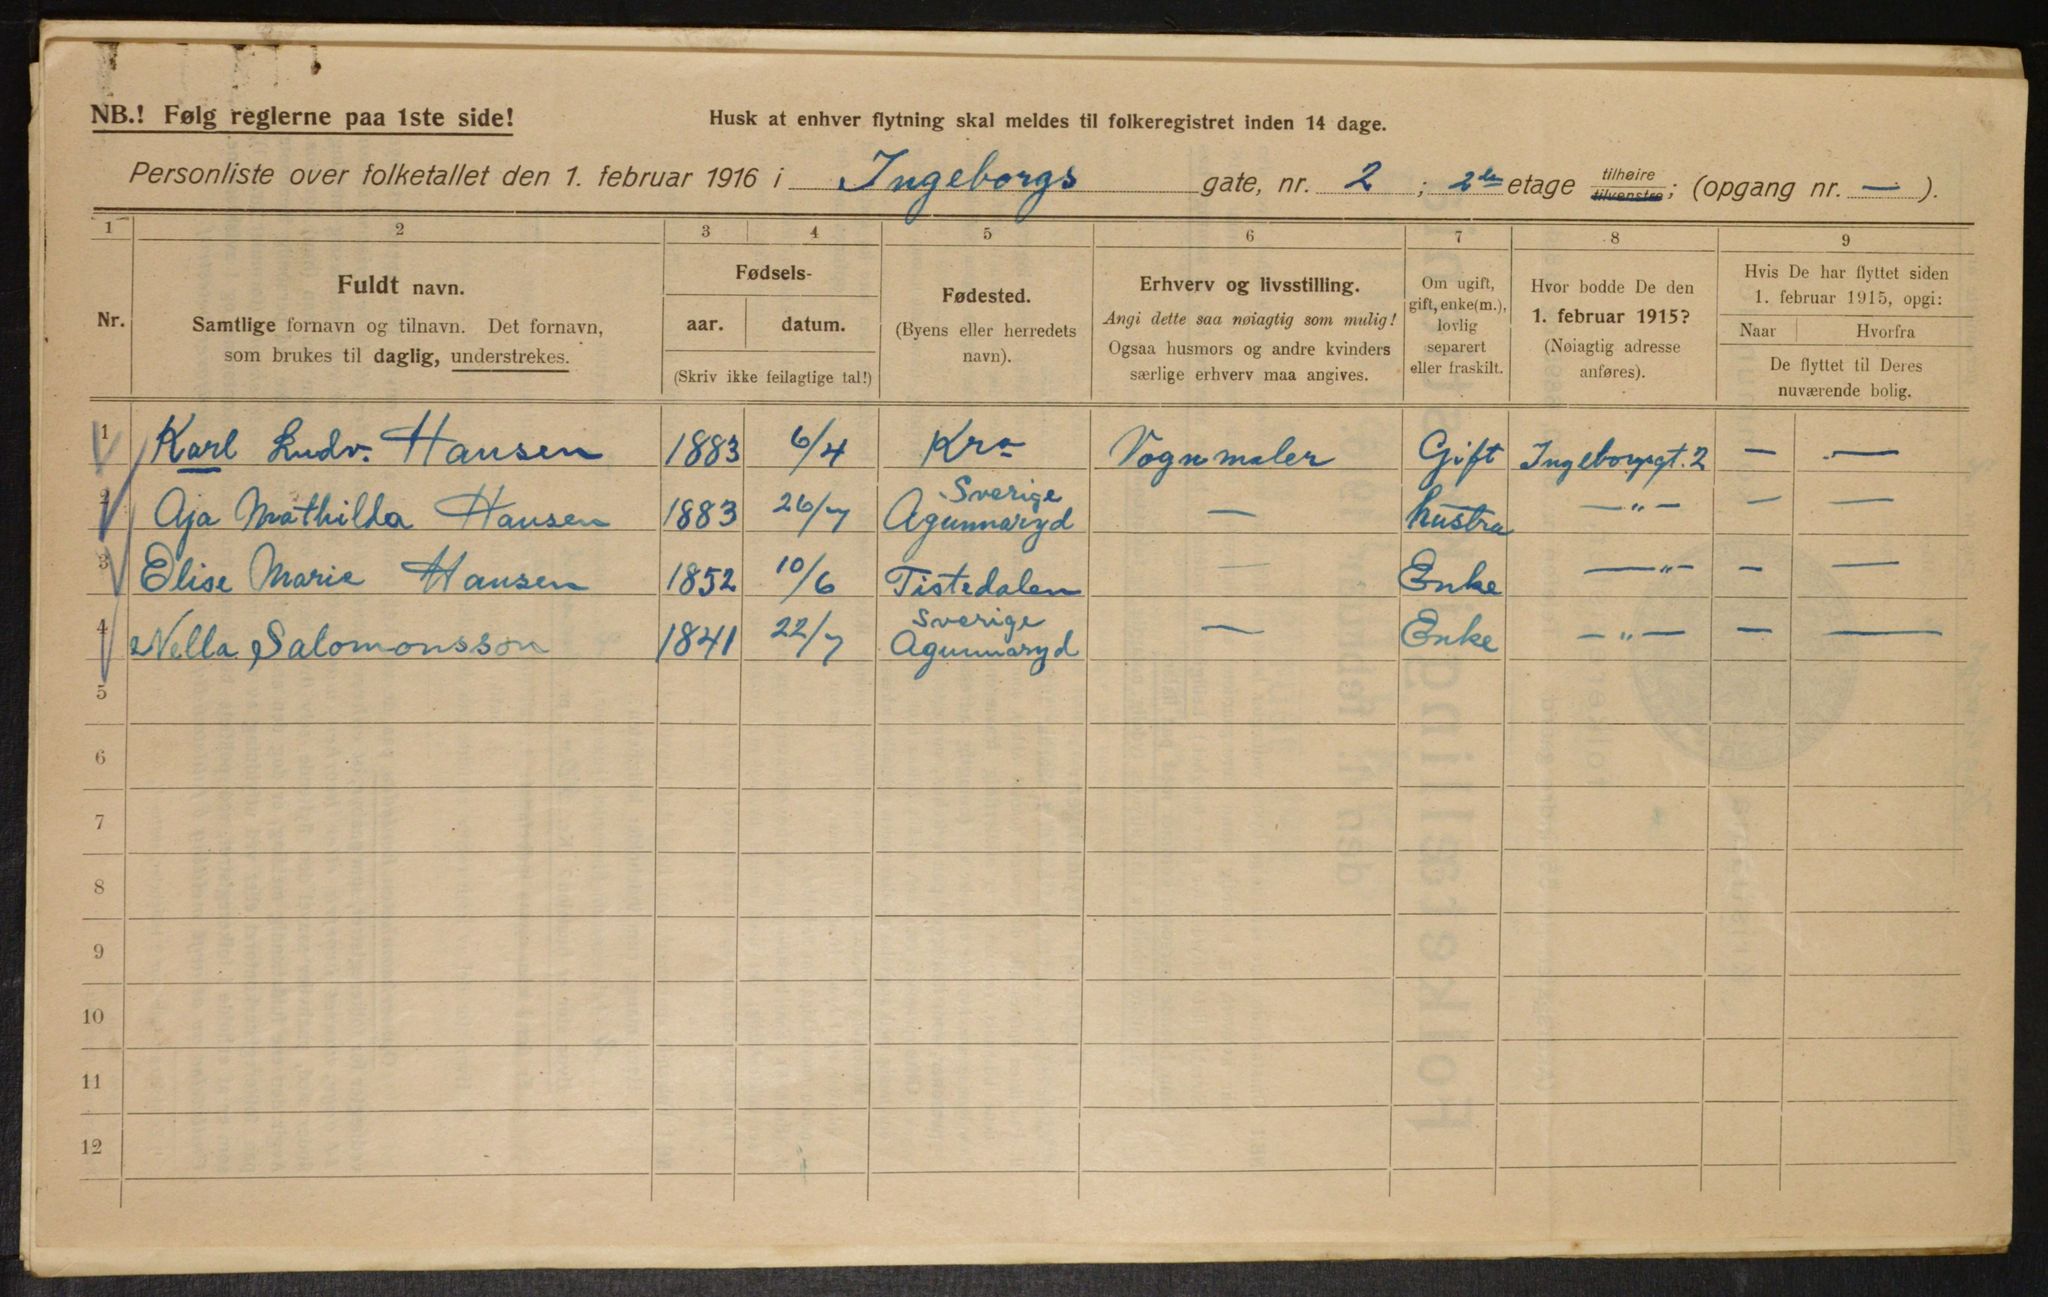 NB.! Følg reglerne paa 1ste side!
Husk at enhver flytning skal meldes til folkeregistret inden 14 dage.
Personliste over folketallet den 1. februar 1916 i Ingeborgs gate, nr. 2 ; 2den etage tilhøire tilvenstre; (opgang nr. — ).
1 2 3 4 5 6 7 8 9
Nr.
Fuldt navn.
Samtlige fornavn og tilnavn. Det fornavn,
som brukes til daglig, understrekes.
Fødsels-
aar. datum.
(Skriv ikke feilagtige tal!)
Fødested.
(Byens eller herredets
navn).
Erhverv og livsstilling.
Angi dette saa nøiagtig som mulig!
Ogsaa husmors og andre kvinders
særlige erhverv maa angives.
Om ugift,
gift, enke(m.),
lovlig
separert
eller fraskilt.
Hvor bodde De den
1. februar 1915?
(Nøiagtig adresse
anføres).
Hvis De har flyttet siden
1. februar 1915, opgi:
Naar Hvorfra
De flyttet til Deres
nuværende bolig.
1 Karl Ludv. Hansen 1883 6/4 Kra Vognmaler Gift Ingeborgsgt. 2 — —
2 Aja Mathilda Hansen 1883 26/7 Sverige Agunnaryd — hustru —"— — —
3 Elise Marie Hansen 1852 10/6 Tistedalen — Enke —"— — —
4 Nella Salomonsson 1841 22/7 Sverige Agunnaryd — Enke —"— — —
5
6
7
8
9
10
11
12